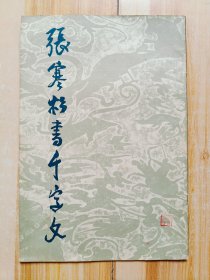 張寒杉書千字文